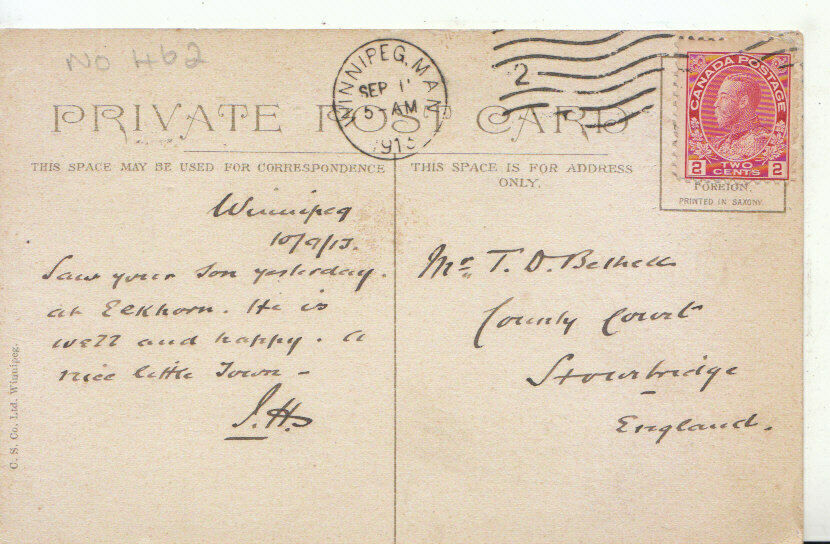 No 462
WINNIPEG, MAN
SEP 11
5-AM
1913
2
CANADA POSTAGE
2 TWO CENTS 2
PRIVATE POST CARD
FOREIGN.
PRINTED IN SAXONY
THIS SPACE MAY BE USED FOR CORRESPONDENCE
THIS SPACE IS FOR ADDRESS
ONLY.
Winnipeg
10/9/13.
Saw your son yesterday.
at Elkhorn. He is
well and happy. a
nice little Town -
J.H.
Mr. T. D. Bethell
County Court
Stourbridge
England.
C. S. Co. Ltd. Winnipeg.